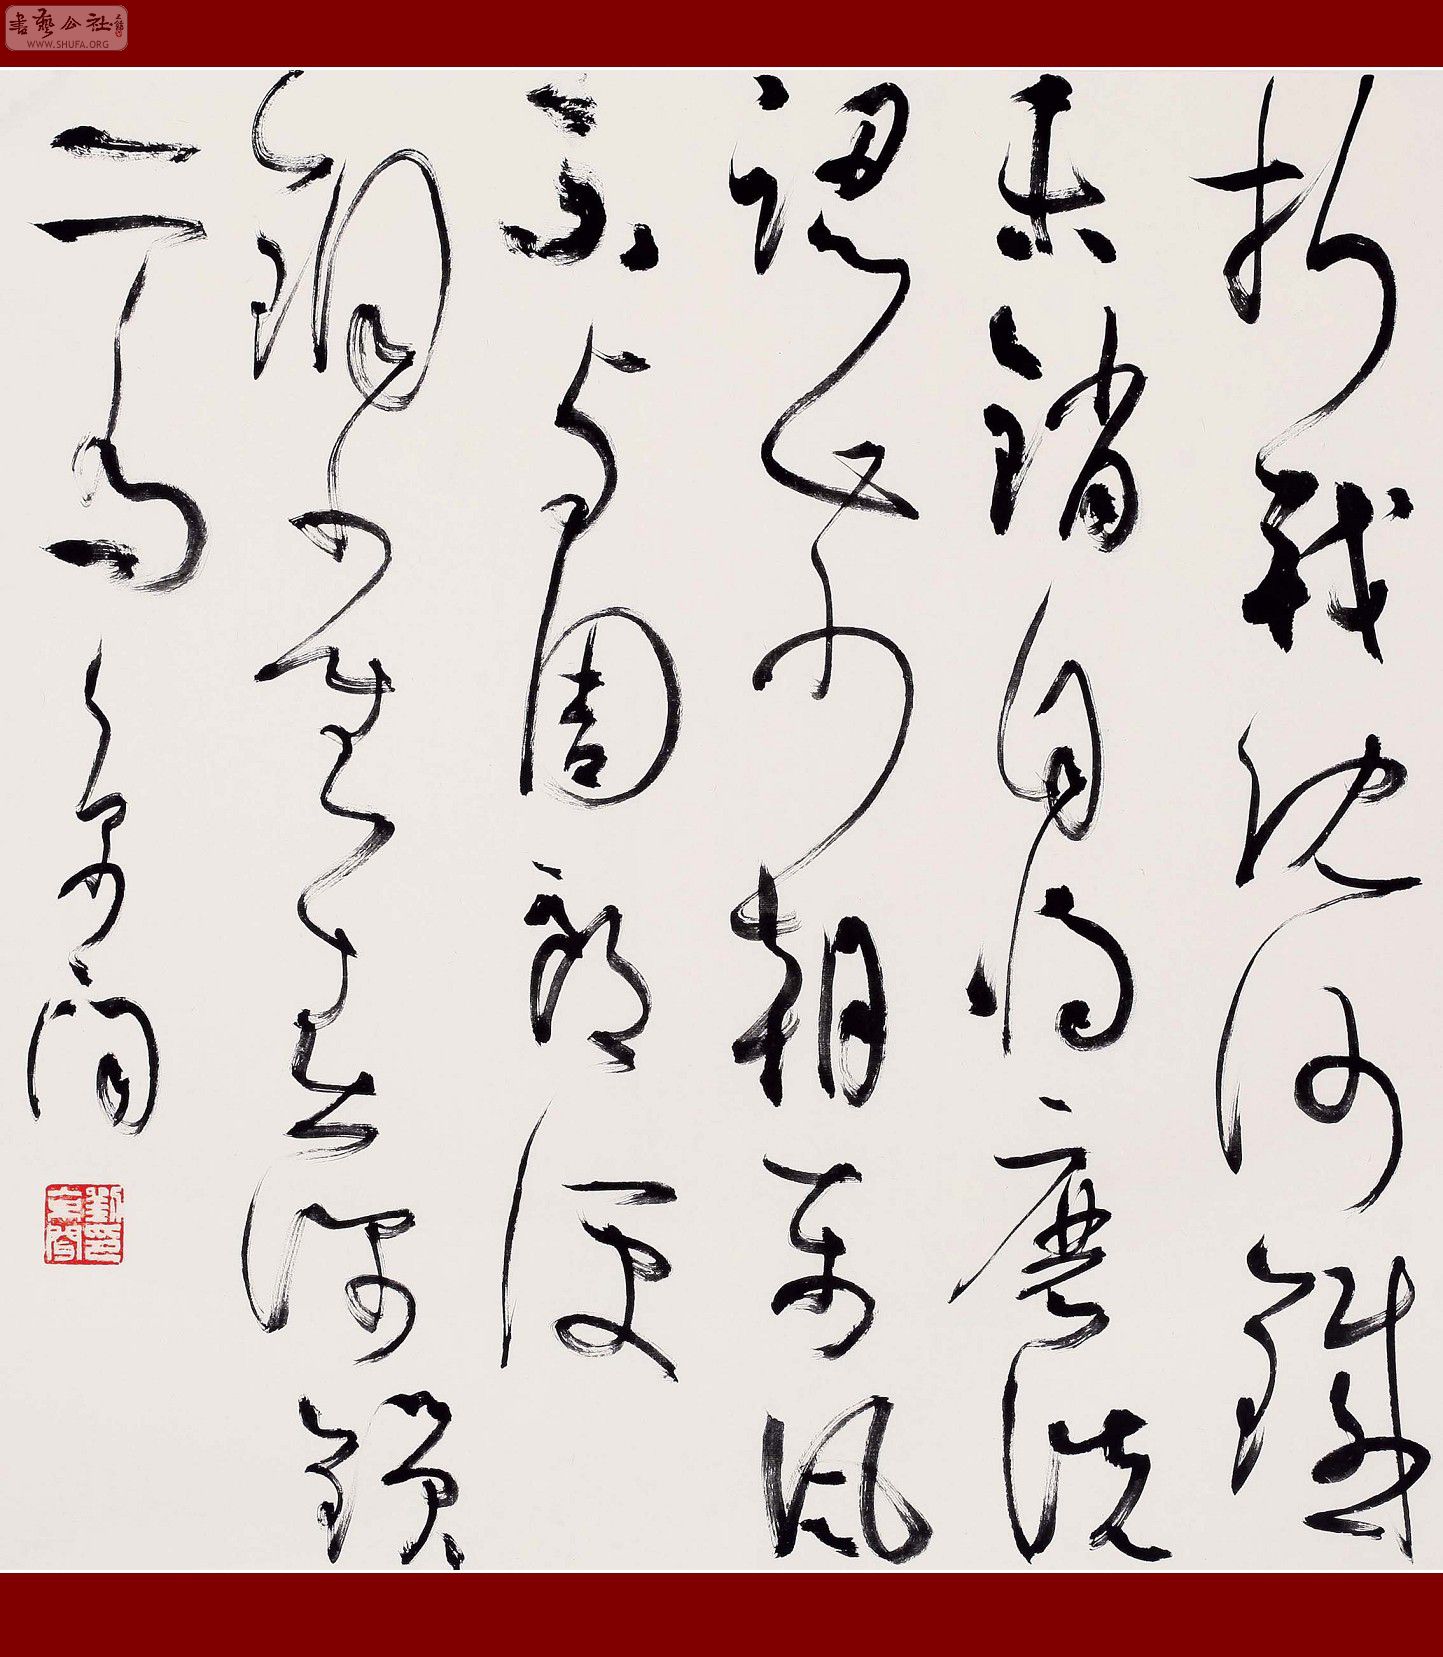 書藝公社
WWW.SHUFA.ORG
折戟沈沙鐵
未銷自將磨洗
認前朝東風
不与周郎便
銅雀春深鎖
二喬 京聞
劉京聞印